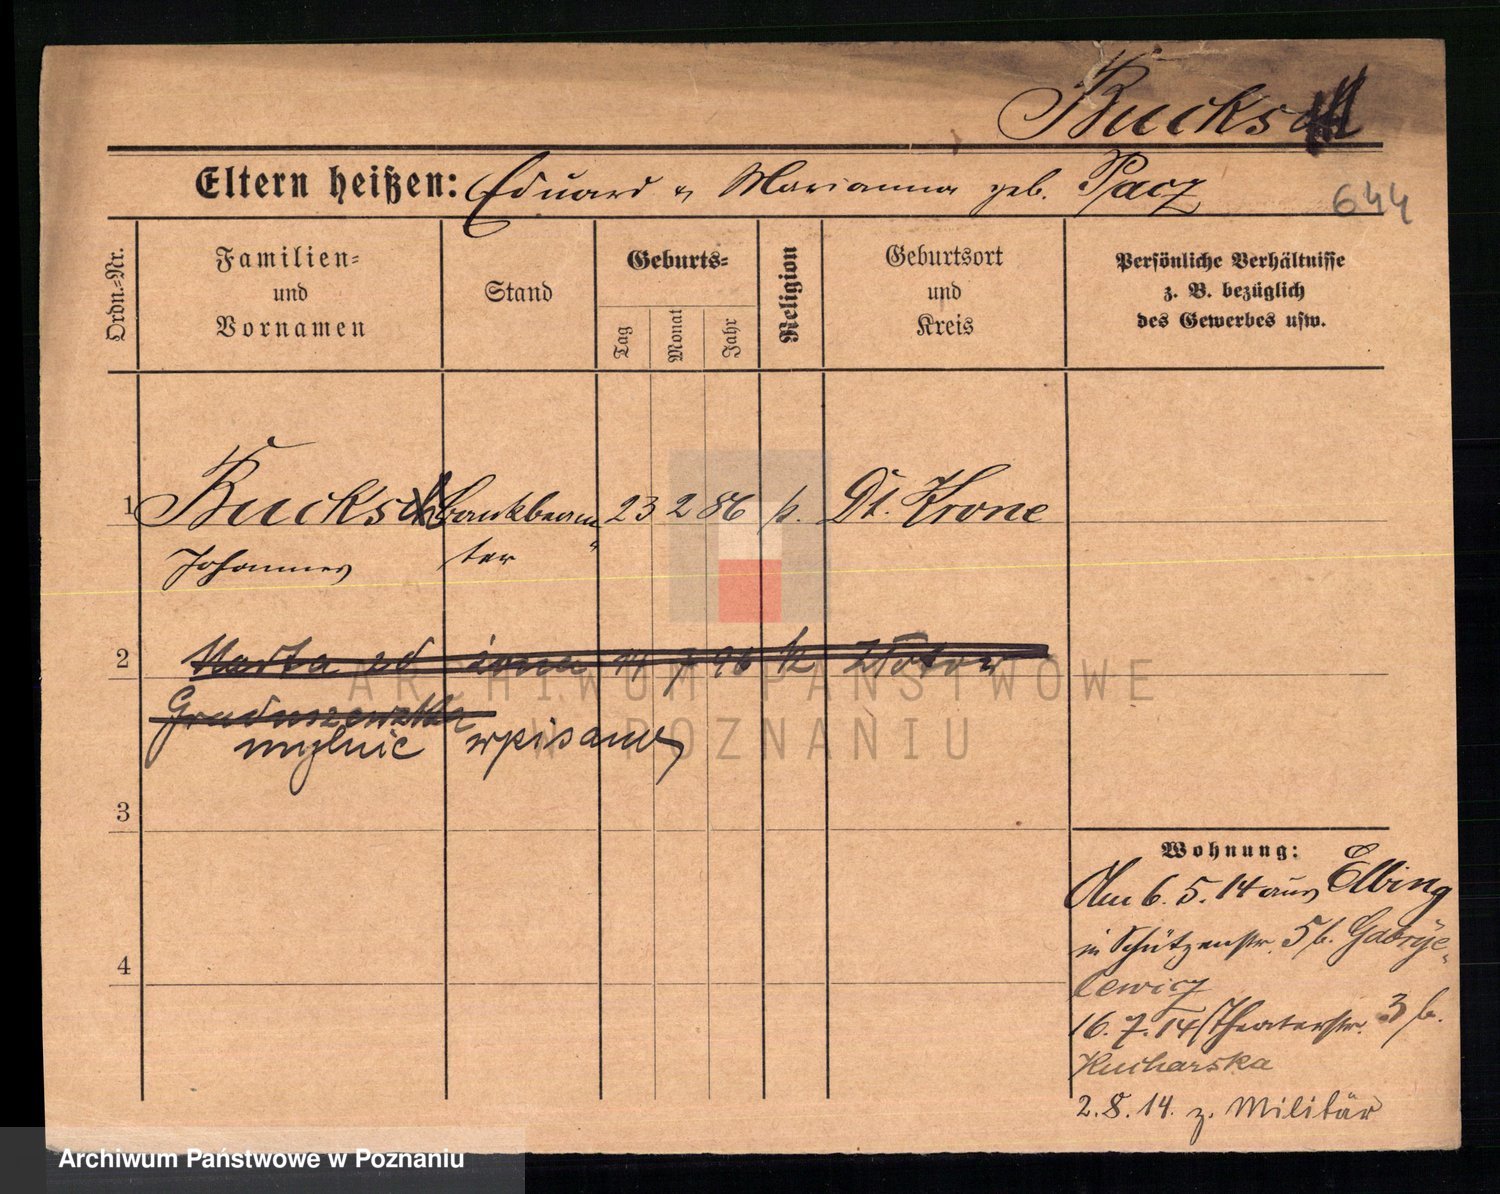 Bucks
Eltern heißen: Eduard u Marianna geb. Pacz
644
Ordn.-Nr.
Familien- und Vornamen
Stand
Geburts-
Tag
Monat
Jahr
Religion
Geburtsort und Kreis
Persönliche Verhältnisse z. B. bezüglich des Gewerbes usw.
1 Bucks Bankbeam 23 2 86 k. Dt. Krone
Johannes ter
2 Marta zd żona 7 96 k Złotow
Graduszewska
mylnie wpisane
3
4
Wohnung:
Am 6. 5. 14 aus Elbing
in Schützenstr. 5 b. Gabrye-
lewicz
16. 7. 14 Theaterstr. 3 b.
Kucharska
2. 8. 14. z. Militär
ARCHIWUM PAŃSTWOWE
W POZNANIU
Archiwum Państwowe w Poznaniu